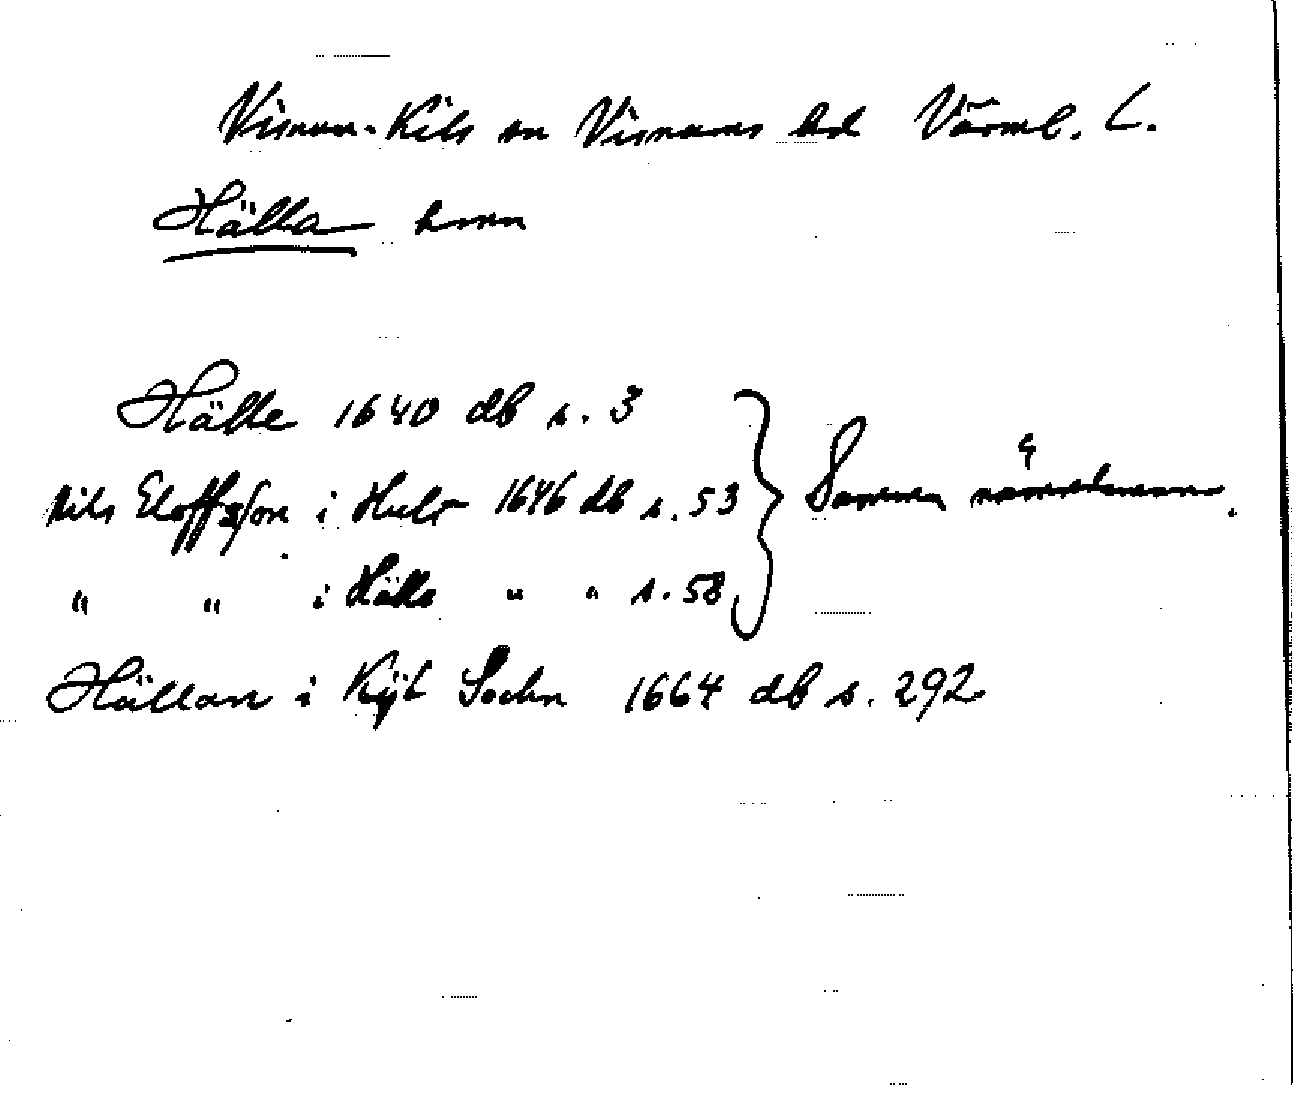 Visnum-Kils sn Visnums hd Värml. L.
Hälla hmn
Hälle 1640 db s. 3
Nils Eloffsson i Hult 1646 db s. 53 } Samma nämndeman.
" " i Hälle " " s. 58
Hällan i Kijl Sochn 1664 db s. 292